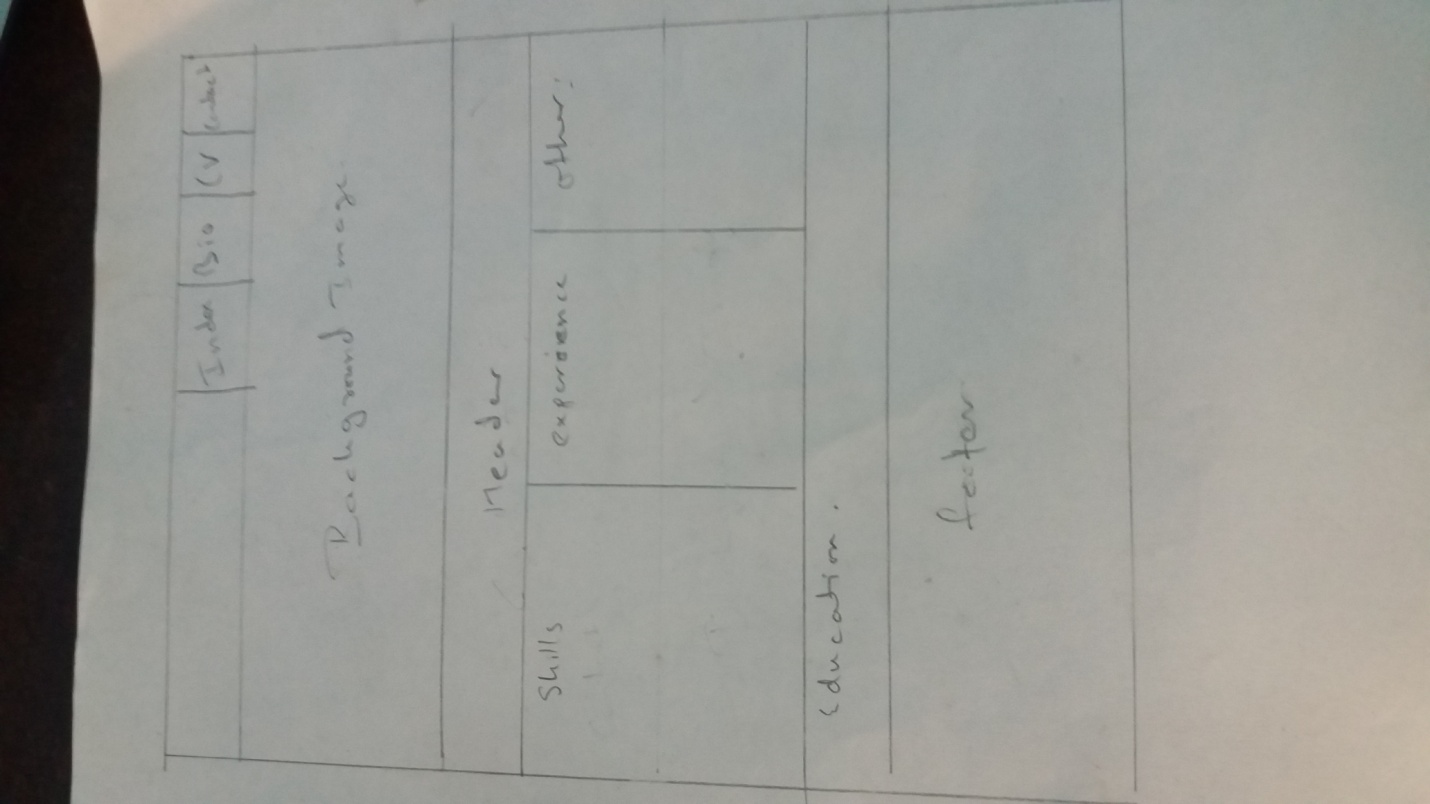 Index Bio CV Contact
Background Image
Header
Skills experience other:
Education.
footer